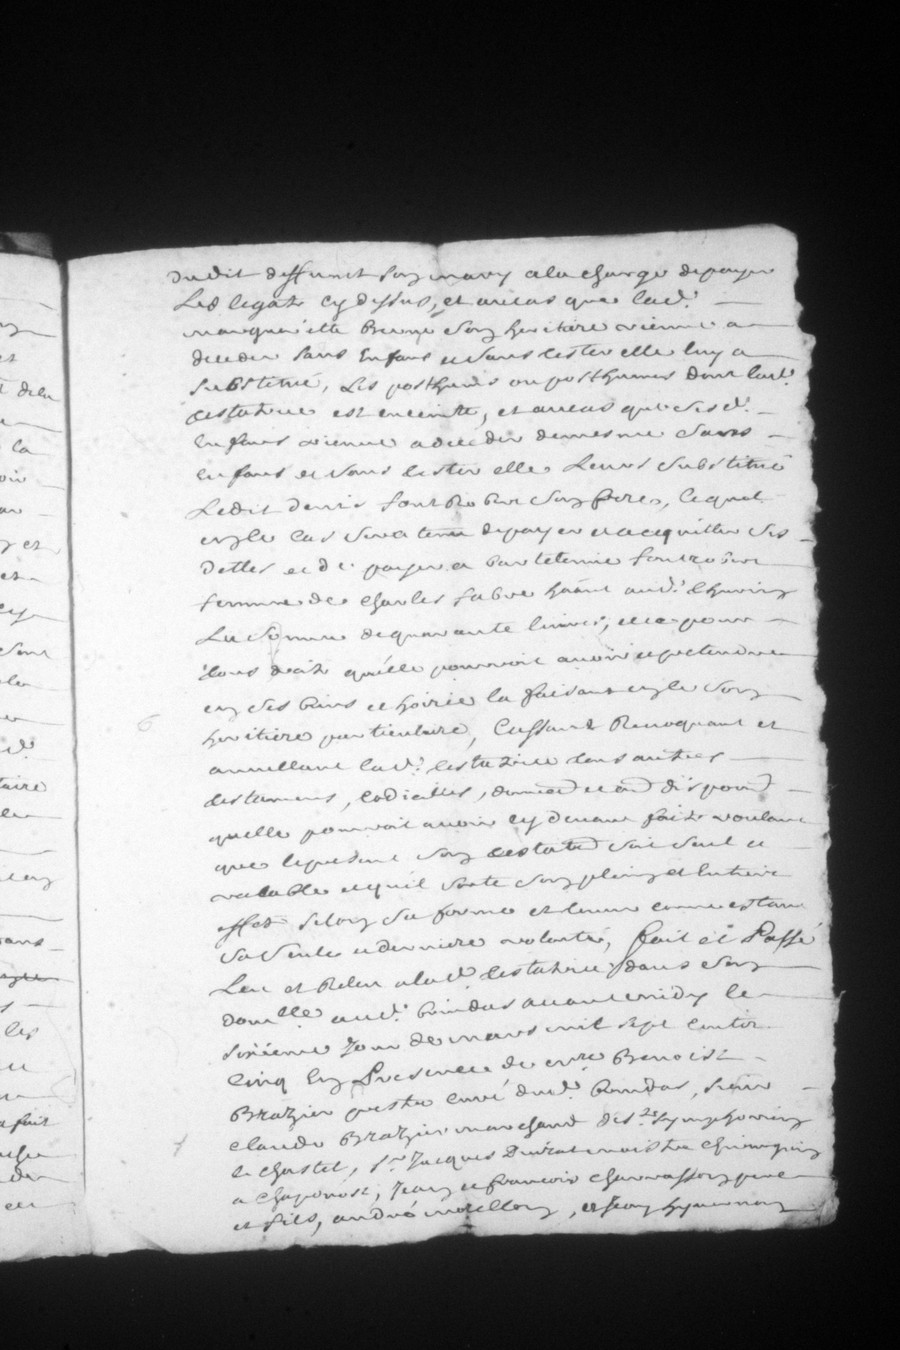 dudit deffunct son mary a la charge de payer
Les legatz cy dessus, et au cas que lad.
son heritiere vienne a
deceder sans Enfans et sans tester elle luy a
substitué, Les posthumes ou posthumes dont lad.
testatrice est enceinte, et au cas que sesd.
Enfans vienne a deceder de mesme sans
enfans et sans tester elle Leurs substitue
Ledit denis son frere, lequel
en ce cas sera tenu de payer et acquitter ses
dettes et de payer a
femme de Charles fabre
La somme de quarante livres, et ce pour
tous droitz qu'elle pourroit avoir et pretendre
en ses biens et hoirie la faisant en ce son
heritiere particuliere, Cassant Revoquant et
annullant lad. testatrice tous autres
testamens, codicilles, donnaõns et aũes dispoõns
quelle pourroit avoir cy devant faitz voulant
que le present son testamt soit seul et
valable et quil sorte son plein et Entier
effet selon sa forme et teneur comme estant
sa seule et derniere volonté, fait et Passé
Leu et Releu a lad. testatrice dans son
domille aud. brindas avant midy le
sixieme Jour de mars mil sept centz
Cinq En Presence de mre Benoist
Brazier prestre curé dud. brindas, sieur
claude Brazier marchand de st Symphorien
le chastel, sr Jacques maistre chirurgien
a chaponost, Jean et francois charvasson pere
et fils, andré